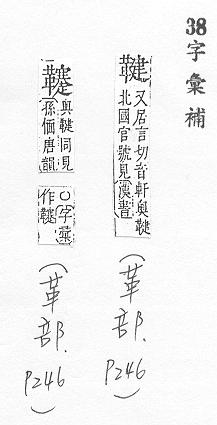 38字彙補
鞬
又居言切音軒與鞬
北國官號見漢書
(革部. P246)
與鞬同見
孫愐唐韻
○字彙
作
(革部. P246)